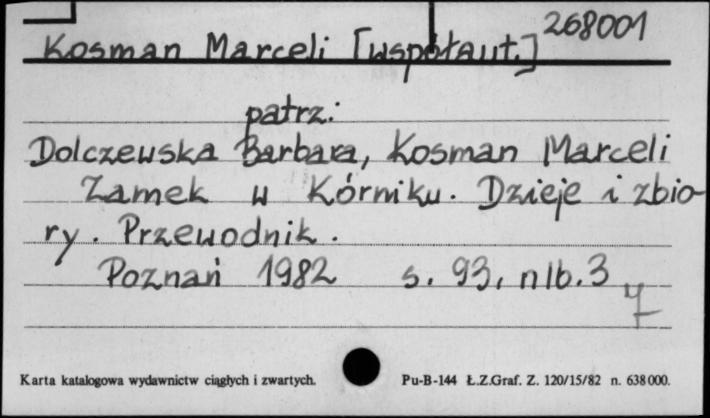 268001
Kosman Marceli [współaut.]
patrz:
Dolczewska Barbara, Kosman Marceli
Zamek w Kórniku. Dzieje i zbio-
ry. Przewodnik.
Poznań 1982 s. 93, nlb. 3
Karta katalogowa wydawnictw ciągłych i zwartych. Pu-B-144 Ł.Z.Graf. Z. 120/15/82 n. 638000.